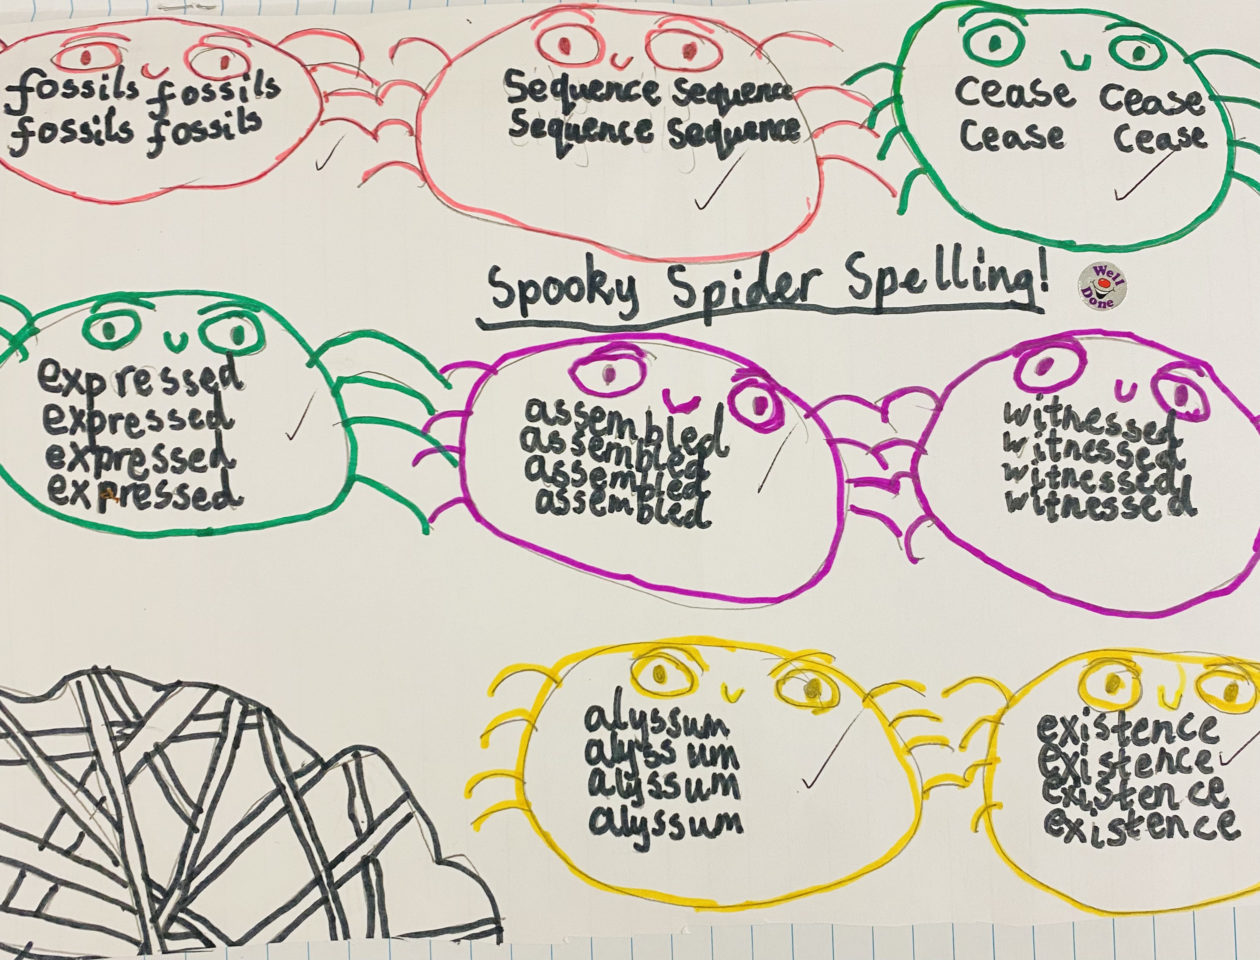 fossils fossils
fossils fossils
Sequence sequence
Sequence sequence
cease cease
cease cease
Spooky Spider Spelling!
Well Done
expressed
expressed
expressed
expressed
assembled
assembled
assembled
assembled
witnessed
witnessed
witnessed
witnessed
alyssum
alyssum
alyssum
alyssum
existence
existence
existence
existence